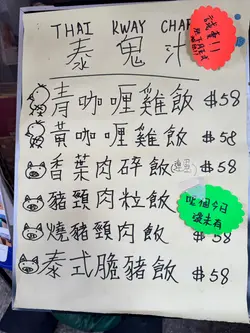 THAI KWAY CHAP
泰鬼汁
青咖喱雞飯 $58
黃咖喱雞飯 $58
香葉肉碎飯 $58
豬頸肉粒飯
燒豬頸肉飯 $58
泰式臘豬飯 $58
誠実!!
呢個今日
還未有